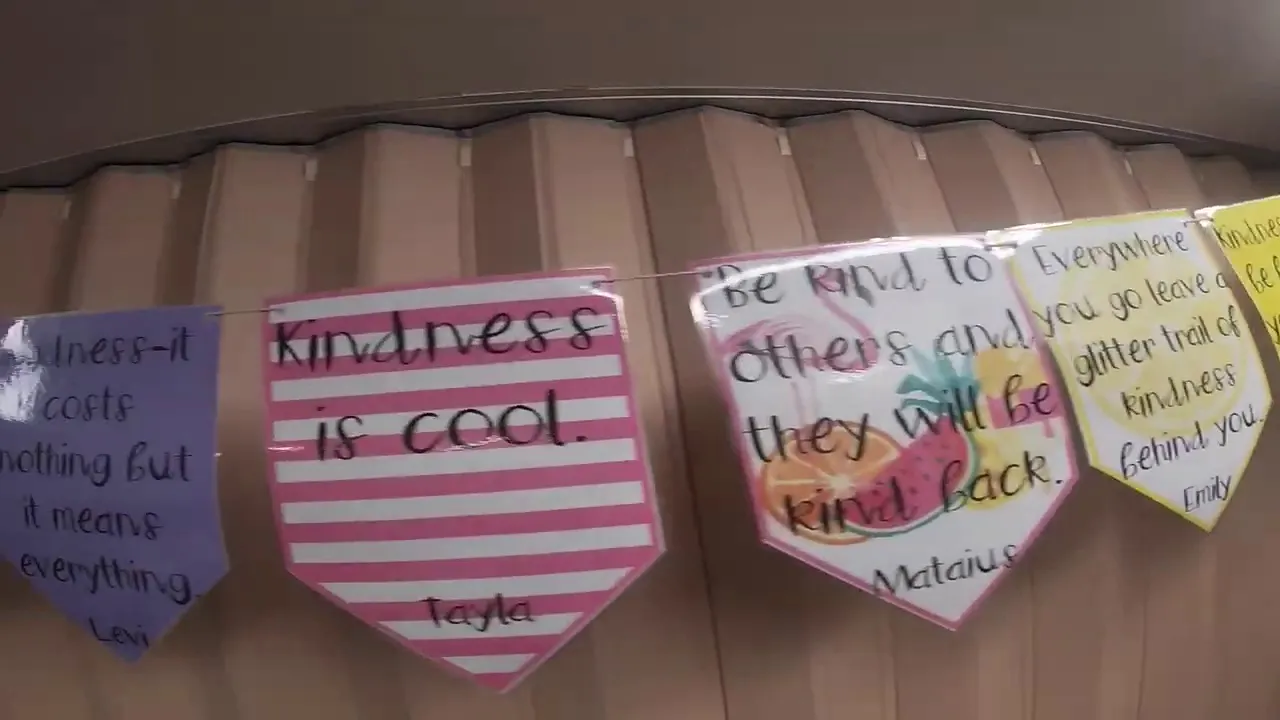 costs
nothing but
it means
everything.
Levi
Kindness
is cool.
Tayla
Be kind to
others and
they will be
kind back.
Mataius
Everywhere
you go leave a
glitter trail of
kindness
behind you.
Emily